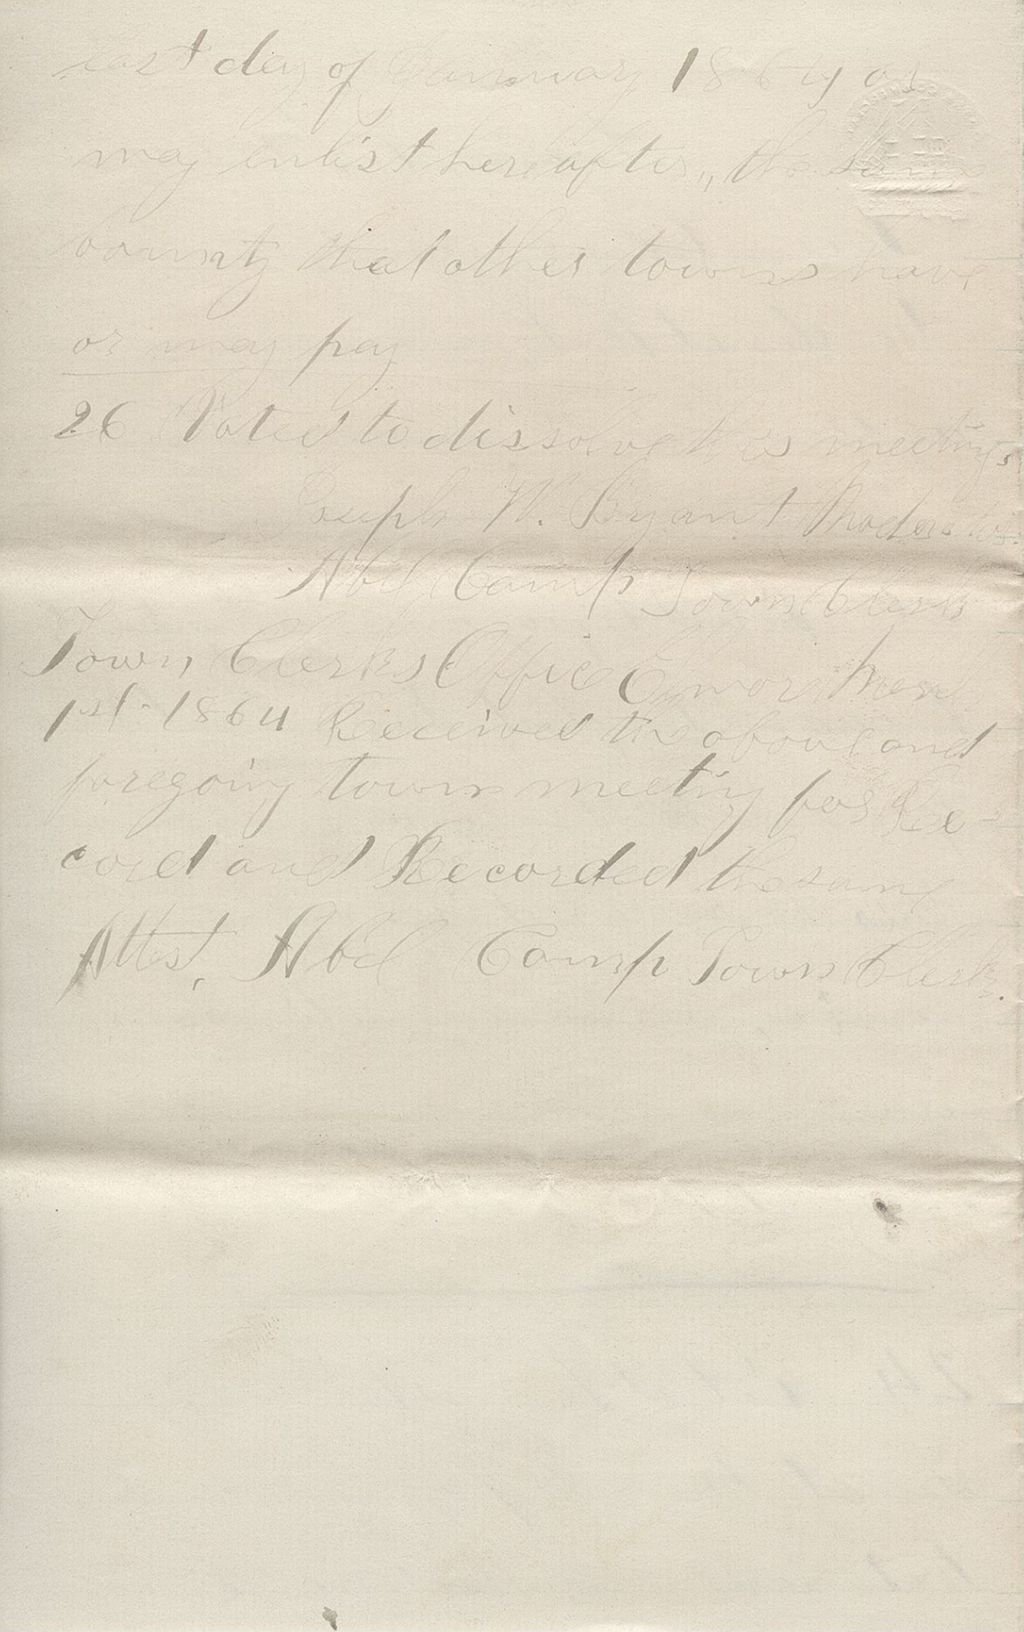 last day of January 1864 or
may enlist hereafter,, the same
bounty that other towns have
or may pay
26 Voted to dissolve this meeting,
Joseph W. Bryant Moderator.
Abel Camp Town Clerk
Town Clerks Office Elmore
1st. 1864 Received the above and
foregoing town meeting for Re-
cord and Recorded the same
Attest, Abel Camp Town Clerk.